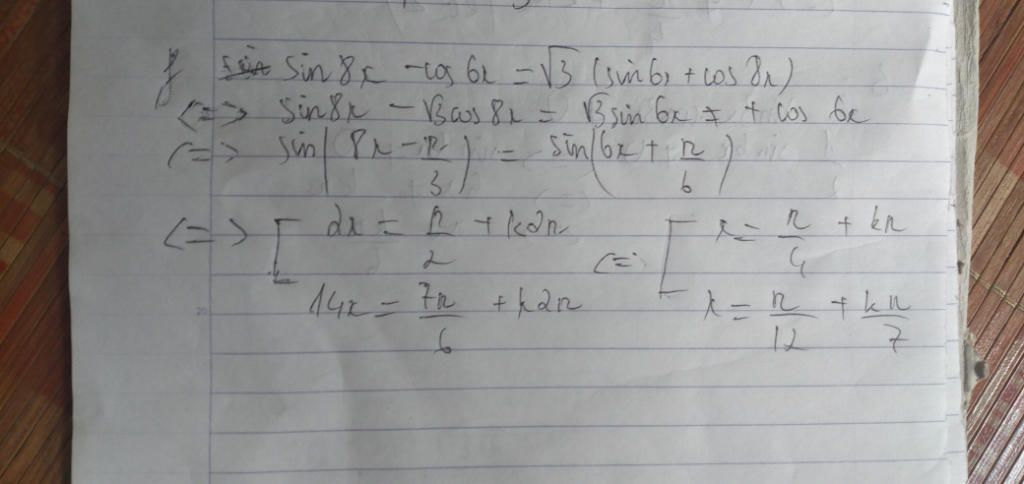 f sin 8x - cos 6x = √3 (sin 6x + cos 8x)
<=> sin 8x - √3 cos 8x = √3 sin 6x + cos 6x
<=> sin(8x - π/3) = sin(6x + π/6)
<=> [ 2x = π/2 + k2π <=> [ x = π/4 + kπ
14x = 7π/6 + k2π x = π/12 + kπ/7